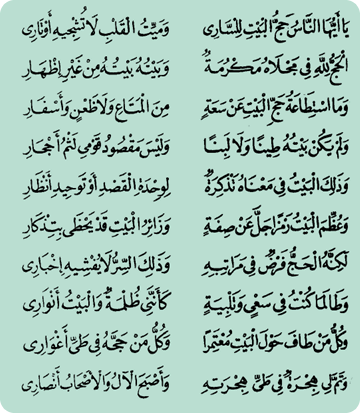 يَا أَيُّهَا النَّاسُ حَجُّ الْبَيْتِ لِلسَّارِي وَمَيِّتُ الْقَلْبِ لَا تُشْجِيهِ أَوْتَارِي
الْحَجُّ لِلَّهِ فِي مَجْلَاهُ مَكْرُمَةٌ وَبَيْتُهُ بَيْتُهُ مِنْ غَيْرِ إِظْهَارِ
وَمَا اسْتِطَاعَةُ حَجِّ الْبَيْتِ عَنْ سَعَةٍ مِنَ الْمَتَاعِ وَلَا ظَعْنٍ وَأَسْفَارِ
وَلَمْ يَكُنْ بَيْتُهُ طِينًا وَلَا لَبِنًا وَلَيْسَ مَقْصُودُ قَوْمِي لَثْمُ أَحْجَارِ
وَذَلِكَ الْبَيْتُ فِي مَعْنَاهُ تَذْكِرَةٌ لِوِحْدَةِ الْقَصْدِ أَوْ تَوْحِيدِ أَنْظَارِ
وَعُظِّمَ الْبَيْتُ رَمْزًا جَلَّ عَنْ صِفَةٍ وَزَائِرُ الْبَيْتِ قَدْ يَحْظَى بِتِذْكَارِ
لَكِنَّهُ الْحَجُّ فَرْضٌ فِي مَرَاتِبِهِ وَذَلِكَ السِّرُّ لَا يُفْشِيهِ إِخْبَارِي
وَطَالَمَا كُنْتُ فِي سَعْيٍ وَتَلْبِيَةٍ كَأَنَّنِي ظُلْمَةٌ وَالْبَيْتُ أَنْوَارِي
وَكُلُّ مَنْ طَافَ حَوْلَ الْبَيْتِ مُعْتَمِرًا وَكُلُّ مَنْ حَجَّهُ فِي طَيِّ أَغْوَارِي
وَتَمَّ لِي هِجْرَةٌ فِي طَيِّ هِجْرَتِهِ وَأَصْبَحَ الْآلُ وَالْأَصْحَابُ أَنْصَارِي